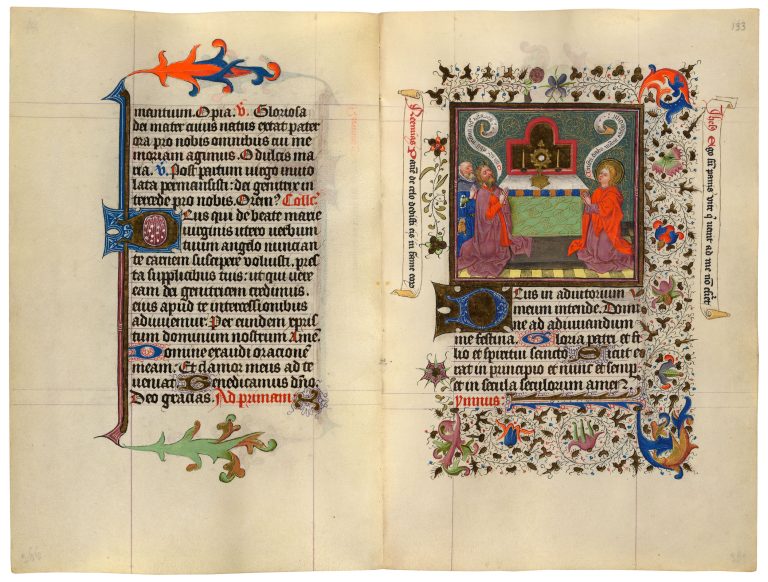 mentium. O pia. v. Gloriosa
dei mater cuius natus extat pater
ora pro nobis omnibus cui me
moriam agimus. O dulcis ma
ria. v. Post partum virgo invio
lata permansisti: dei genitrix in
tercede pro nobis. Orem9 Collec
Deus qui de beate marie
virginis utero verbum
tuum angelo nuncian
te carnem suscipere voluisti. pres
ta supplicibus tuis: ut qui vere
eam dei genitricem credimus.
eius apud te intercessionibus
adiuvemur. Per eundem xpris
tum dominum nostrum Amen.
Domine exaudi oracionem
meam. Et clamor meus ad te
veniat Benedicamus dno.
Deo gracias. Ad primam
133
Neemias Pane de celo dedisti eis in fame eorum
Ego sum panis vite q venit ad me no esuriet
Deus in adiutorium
meum intende. Domi
ne ad adiuvandum
me festina. Gloria patri et fi
lio et spiritui sancto. Sicut er
rat in principio et nunc et semper
et in secula seculorum amen.
ymnus: